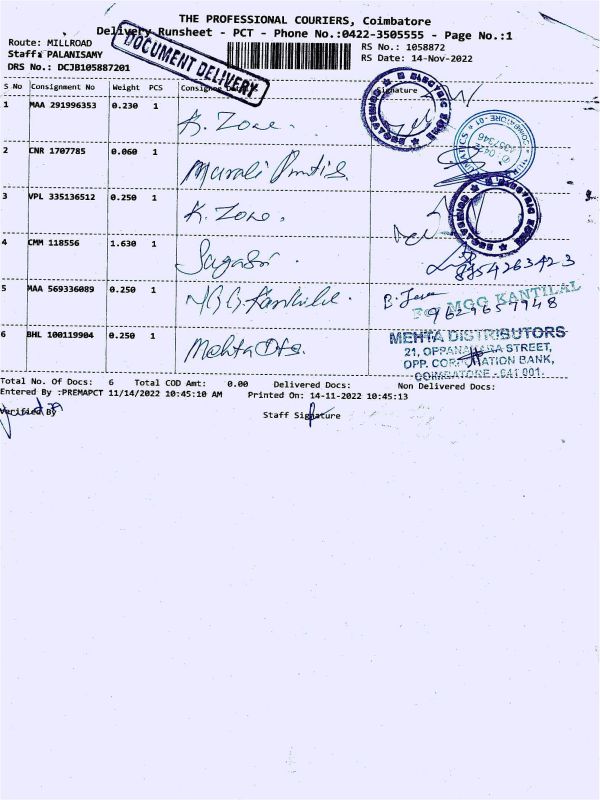 THE PROFESSIONAL COURIERS, Coimbatore
Delivery Runsheet - PCT - Phone No.:0422-3505555 - Page No.:1
Route: MILLROAD
RS No.: 1058872
Staff: PALANISAMY
RS Date: 14-Nov-2022
DRS No.: DCJB105887201
DOCUMENT DELIVERY
S No Consignment No Weight PCS Consignee Signature
1 MAA 291996353 0.230 1 K. Zone.
ELECTRIC ZONE
2 CNR 1707785 0.060 1 Murali
3 VPL 335136512 0.250 1 K. Zone.
ELECTRIC ZONE
4 CMM 118556 1.630 1
8854263423
5 MAA 569336089 0.250 1 MGG Kantilal.
MGG KANTILAL
9629657948
6 BHL 100119904 0.250 1 Mehta Dts.
MEHTA DISTRIBUTORS
21, OPPANAKARA STREET,
OPP. CORPORATION BANK,
COIMBATORE - 641 001.
Total No. Of Docs: 6 Total COD Amt: 0.00 Delivered Docs: Non Delivered Docs:
Entered By :PREMAPCT 11/14/2022 10:45:10 AM Printed On: 14-11-2022 10:45:13
Verified By Staff Signature